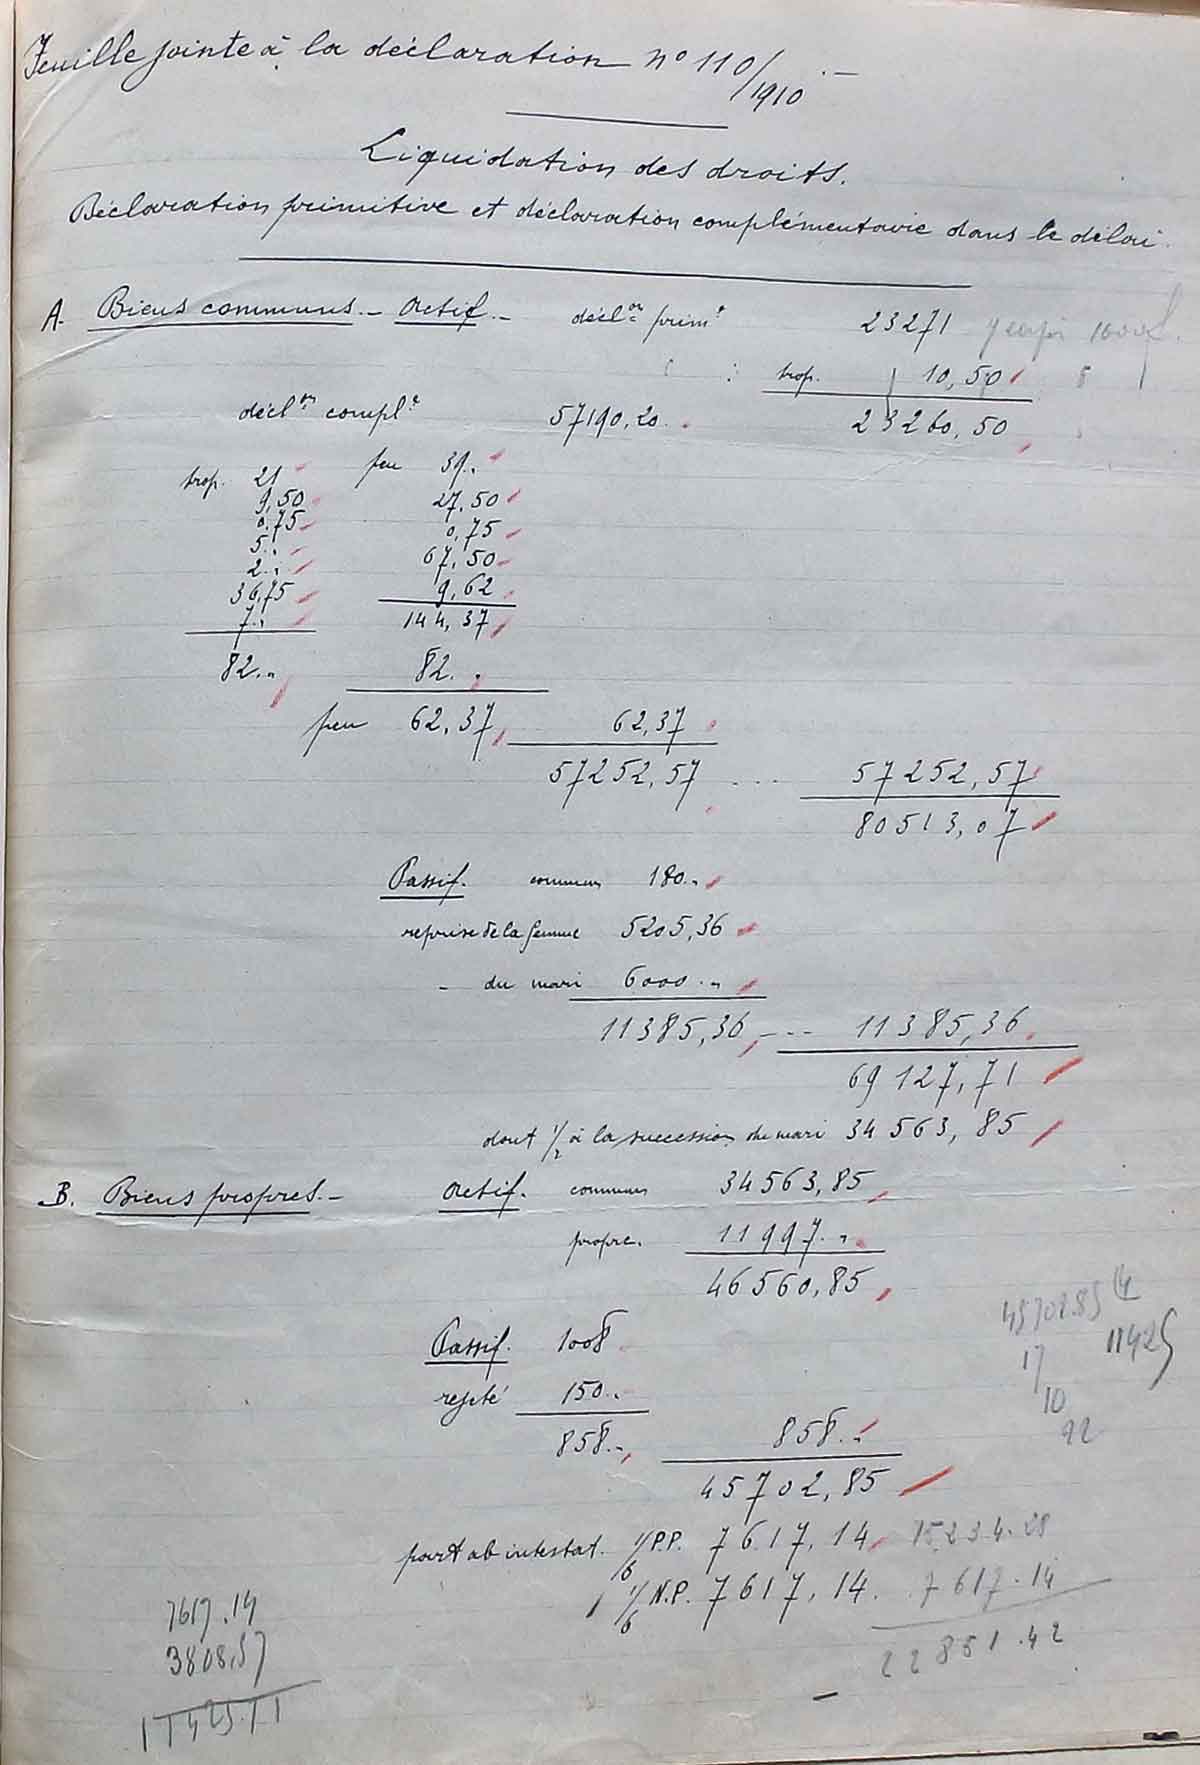 Feuille jointe à la déclaration n° 110/1910
Liquidation des droits.
Déclaration primitive et déclaration complémentaire dans le délai.
A. Biens communs. - Actif. - décl.on prim.e 23271 1000f.
trop. 10,50
23260,50
décl.on compl.e 57190,20
trop. 21 peu 39..
9,50 27,50
0,75 0,75
5.. 67,50
2.. 9,62
36,75 144,37
7..
82.. 82..
peu 62,37 62,37
57252,57 ... 57252,57
80513,07
Passif. commun 180..
reprise de la femme 5205,36
- du mari 6000..
11385,36 ... 11385,36
69127,71
dont 1/2 à la succession du mari 34563,85
B. Biens propres. - Actif. commun 34563,85
propre. 11997..
46560,85
45702.85 4
Passif. 1008
17 11425
rejeté 150..
10
858.. 858..
22
45702,85
part ab intestat. 1/6 P.P. 7617,14 15234.28
1/6 N.P. 7617,14. 7617.14
22851.42
7617.14
3808,57
11425.71